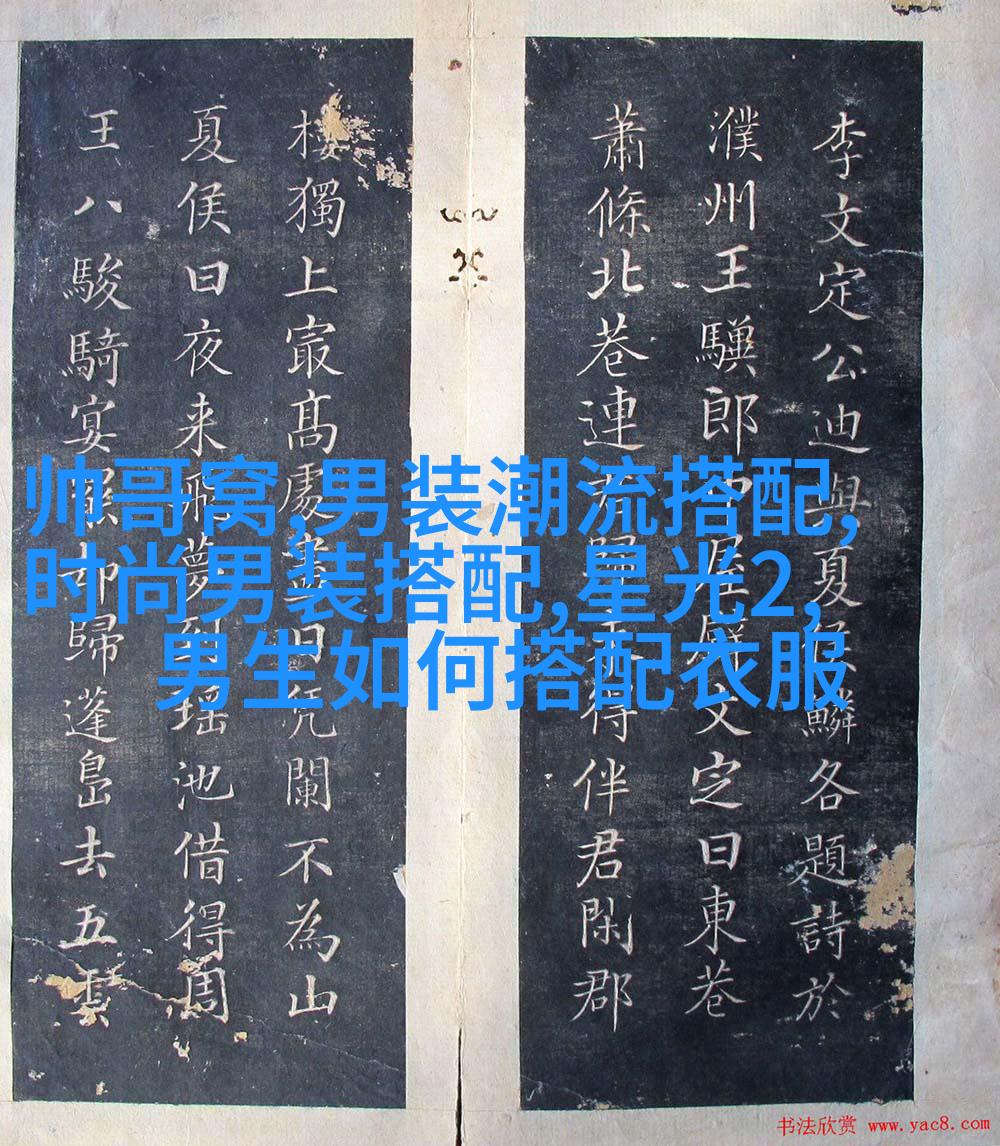 李文定公迪與夏侯鱗各題詩於
濮州王驥郎中屋壁文定曰東巷
蕭條北巷連歸得伴君閑郡
樓獨上㝡髙處盡日凭闌不為山
夏侯曰夜来飛夢到瑶池借得周
王八駿騎宴罷却歸蓬島去五雲
帅哥窝,男装潮流搭配,
时尚男装搭配,星光2,
男生如何搭配衣服
书法欣赏 www.yac8.com